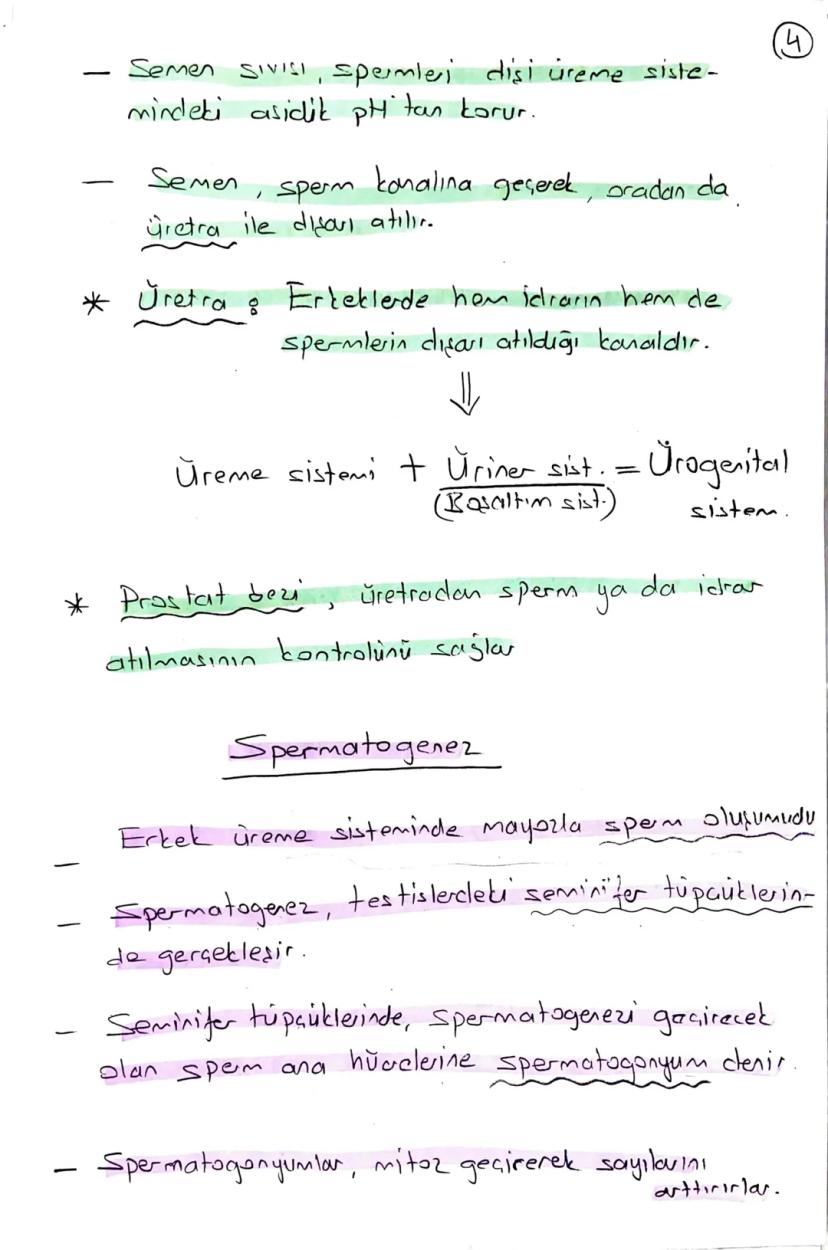 4
— Semen sıvısı, spermleri dişi üreme siste-
mindeki asidik pH'tan korur.
— Semen, sperm kanalına geçerek, oradan da
üretra ile dışarı atılır.
* Üretra : Erkeklerde hem idrarın hem de
spermlerin dışarı atıldığı kanaldır.
⇓
Üreme sistemi + Üriner sist. = Ürogenital
(Boşaltım sist.) sistem.
* Prostat bezi, üretradan sperm ya da idrar
atılmasının kontrolünü sağlar
Spermatogenez
— Erkek üreme sisteminde mayozla sperm oluşumudu
— Spermatogenez, testislerdeki seminifer tüpçüklerin-
de gerçekleşir.
— Seminifer tüpçüklerinde, spermatogenezi geçirecek
olan sperm ana hücrelerine spermatogonyum denir.
— Spermatogonyumlar, mitoz geçirerek sayılarını
arttırırlar.